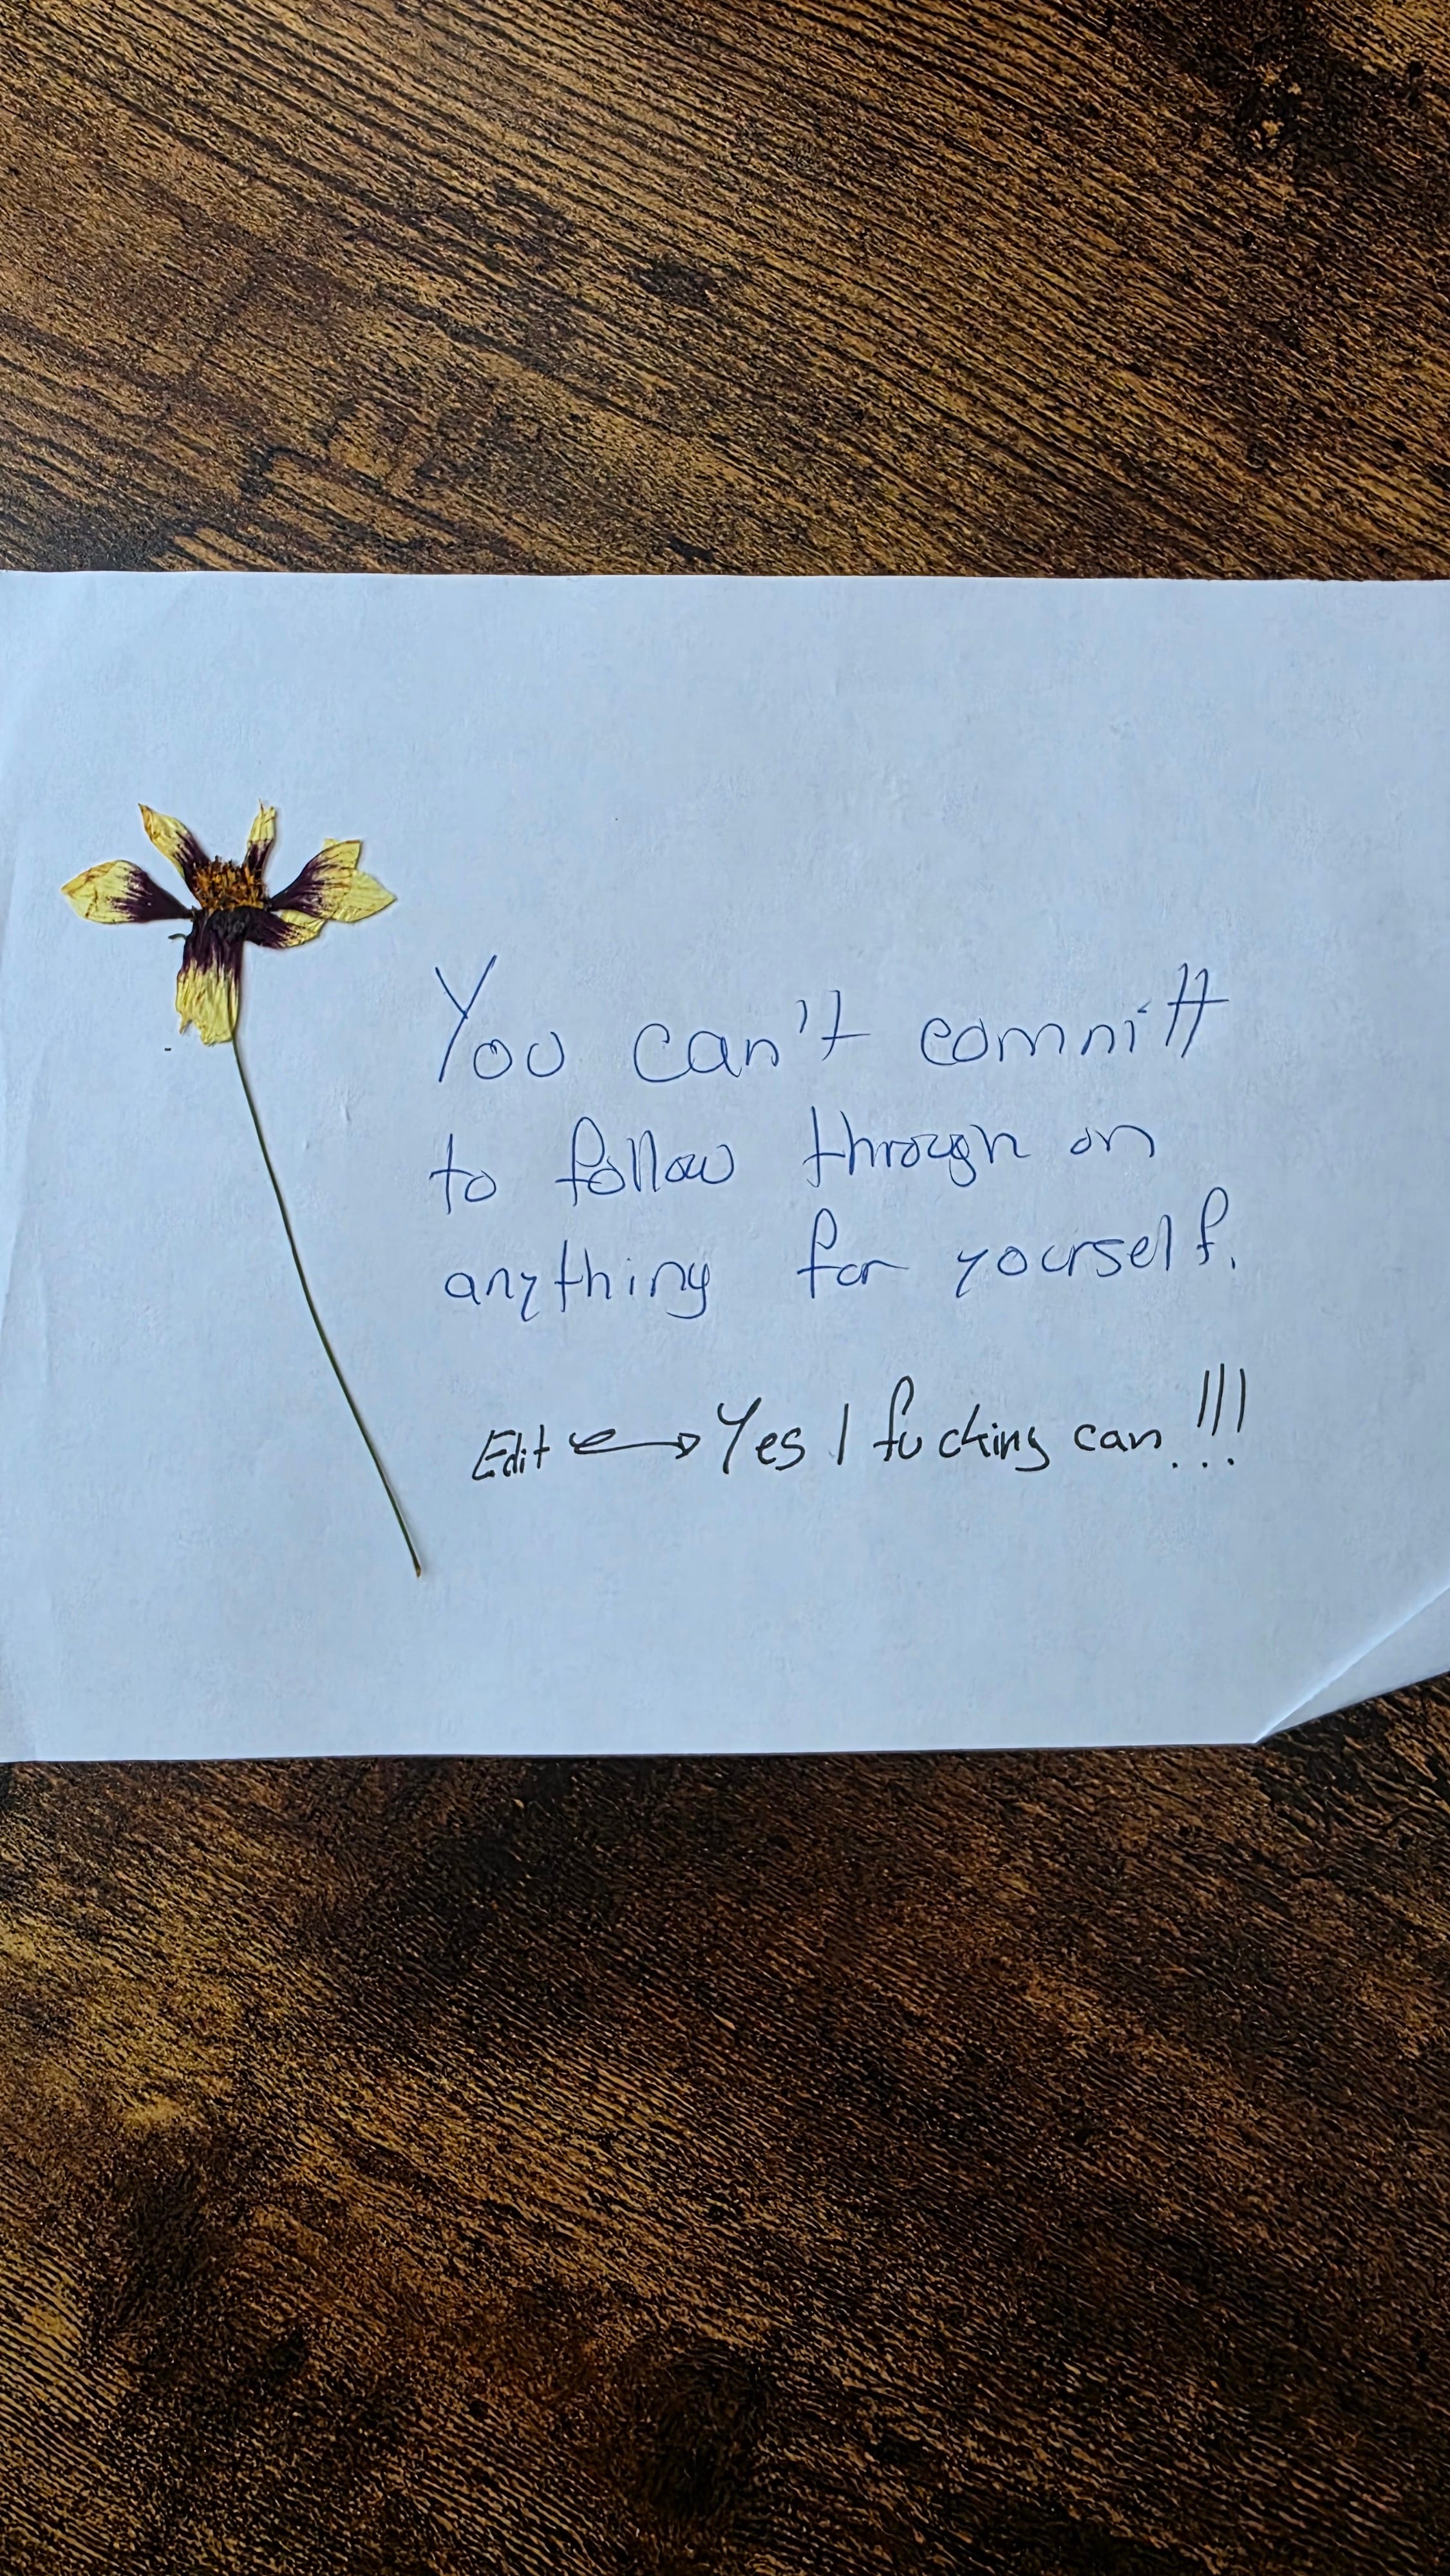 You can't committ
to follow through on
anything for yourself.
Edit ↔ Yes I fucking can!!!